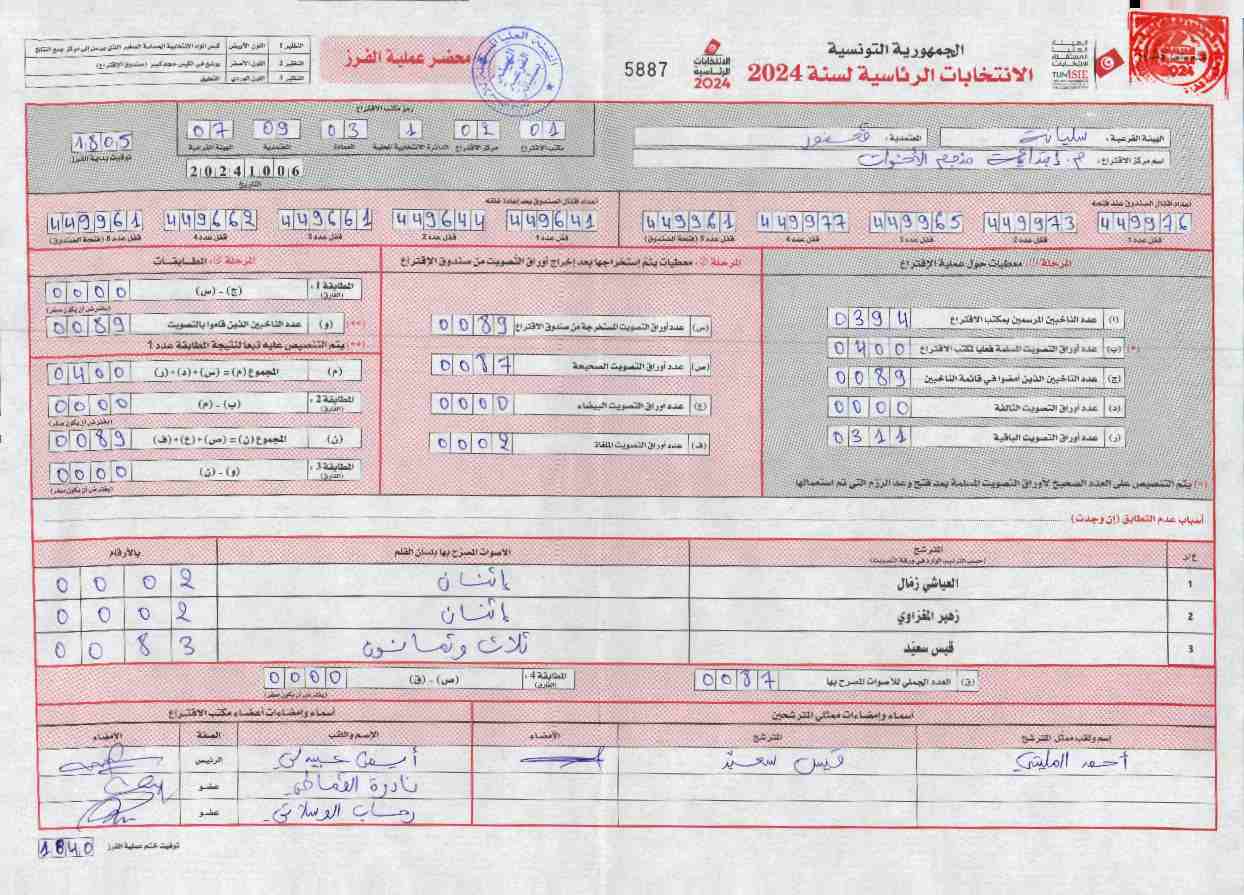 الجمهورية التونسية
الانتخابات الرئاسية لسنة 2024
الانتخابات الرئاسية 2024
5887
محضر عملية الفرز
النظير 1 اللون الأبيض
النظير 2 اللون الأصفر يوضع في الكيس حجم كبير (صندوق الاقتراع)
النظير 3 اللون الوردي التعليق
رمز مكتب الاقتراع
الهيئة الفرعية : سليانة المعتمدية :
01 02 1 03 09 07
مكتب الاقتراع مركز الاقتراع الدائرة الانتخابية المحلية العمادة المعتمدية الهيئة الفرعية
1805
توقيت بداية الفرز
اسم مركز الاقتراع :
20241006
التاريخ
أعداد أقفال الصندوق عند فتحه
449976 449973 449965 449977 449961
قفل عدد 1 قفل عدد 2 قفل عدد 3 قفل عدد 4 قفل عدد 5 (فتحة الصندوق)
أعداد أقفال الصندوق بعد إعادة غلقه
449641 449644 449661 449662 449961
قفل عدد 1 قفل عدد 2 قفل عدد 3 قفل عدد 4 قفل عدد 5 (فتحة الصندوق)
المرحلة 1: معطيات حول عملية الاقتراع
(ا) عدد الناخبين المرسمين بمكتب الاقتراع 0394
(*) (ب) عدد أوراق التصويت المسلمة فعليا لمكتب الاقتراع 0400
(ج) عدد الناخبين الذين أمضوا في قائمة الناخبين 0089
(د) عدد أوراق التصويت التالفة 0000
(ر) عدد أوراق التصويت الباقية 0311
(*) يتم التنصيص على العدد الصحيح لأوراق التصويت المسلمة بعد فتح وعد الرزم التي تم استعمالها
المرحلة 2: معطيات يتم إستخراجها بعد إخراج أوراق التصويت من صندوق الاقتراع
(س) عدد أوراق التصويت المستخرجة من صندوق الاقتراع 0089
(ص) عدد أوراق التصويت الصحيحة 0087
(ع) عدد أوراق التصويت البيضاء 0000
(ف) عدد أوراق التصويت الملغاة 0002
المرحلة 3: المطابقات
المطابقة 1 : (الفارق) (ج) - (س) 0000
(يفترض أن يكون صفر)
(**) (و) عدد الناخبين الذين قاموا بالتصويت 0089
(**) يتم التنصيص عليه تبعا لنتيجة المطابقة عدد 1
(م) المجموع (م) = (س) + (د) + (ر) 0400
المطابقة 2 : (الفارق) (ب) - (م) 0000
(يفترض أن يكون صفر)
(ن) المجموع (ن) = (ص) + (ع) + (ف) 0089
المطابقة 3 : (الفارق) (و) - (ن) 0000
(يفترض أن يكون صفر)
أسباب عدم التطابق (إن وجدت)
ع/ر المترشح (حسب الترتيب الوارد في ورقة التصويت) الأصوات المصرح بها بلسان القلم بالأرقام
1 العياشي زمّال إثنان 0 0 0 2
2 زهير المغزاوي إثنان 0 0 0 2
3 قيس سعيّد ثلاث وثمانون 0 0 8 3
(ق) العدد الجملي للأصوات المصرح بها 0087
المطابقة 4 : (الفارق) (ص) - (ق) 0000
(يفترض أن يكون صفر)
أسماء وإمضاءات ممثلي المترشحين
إسم ولقب ممثل المترشح المترشح الأمضاء
أحمد قيس سعيّد
أسماء وإمضاءات أعضاء مكتب الاقتراع
الإسم واللقب الصفة الأمضاء
الرئيس
نادرة عضو
رحاب عضو
توقيت ختم عملية الفرز 1840